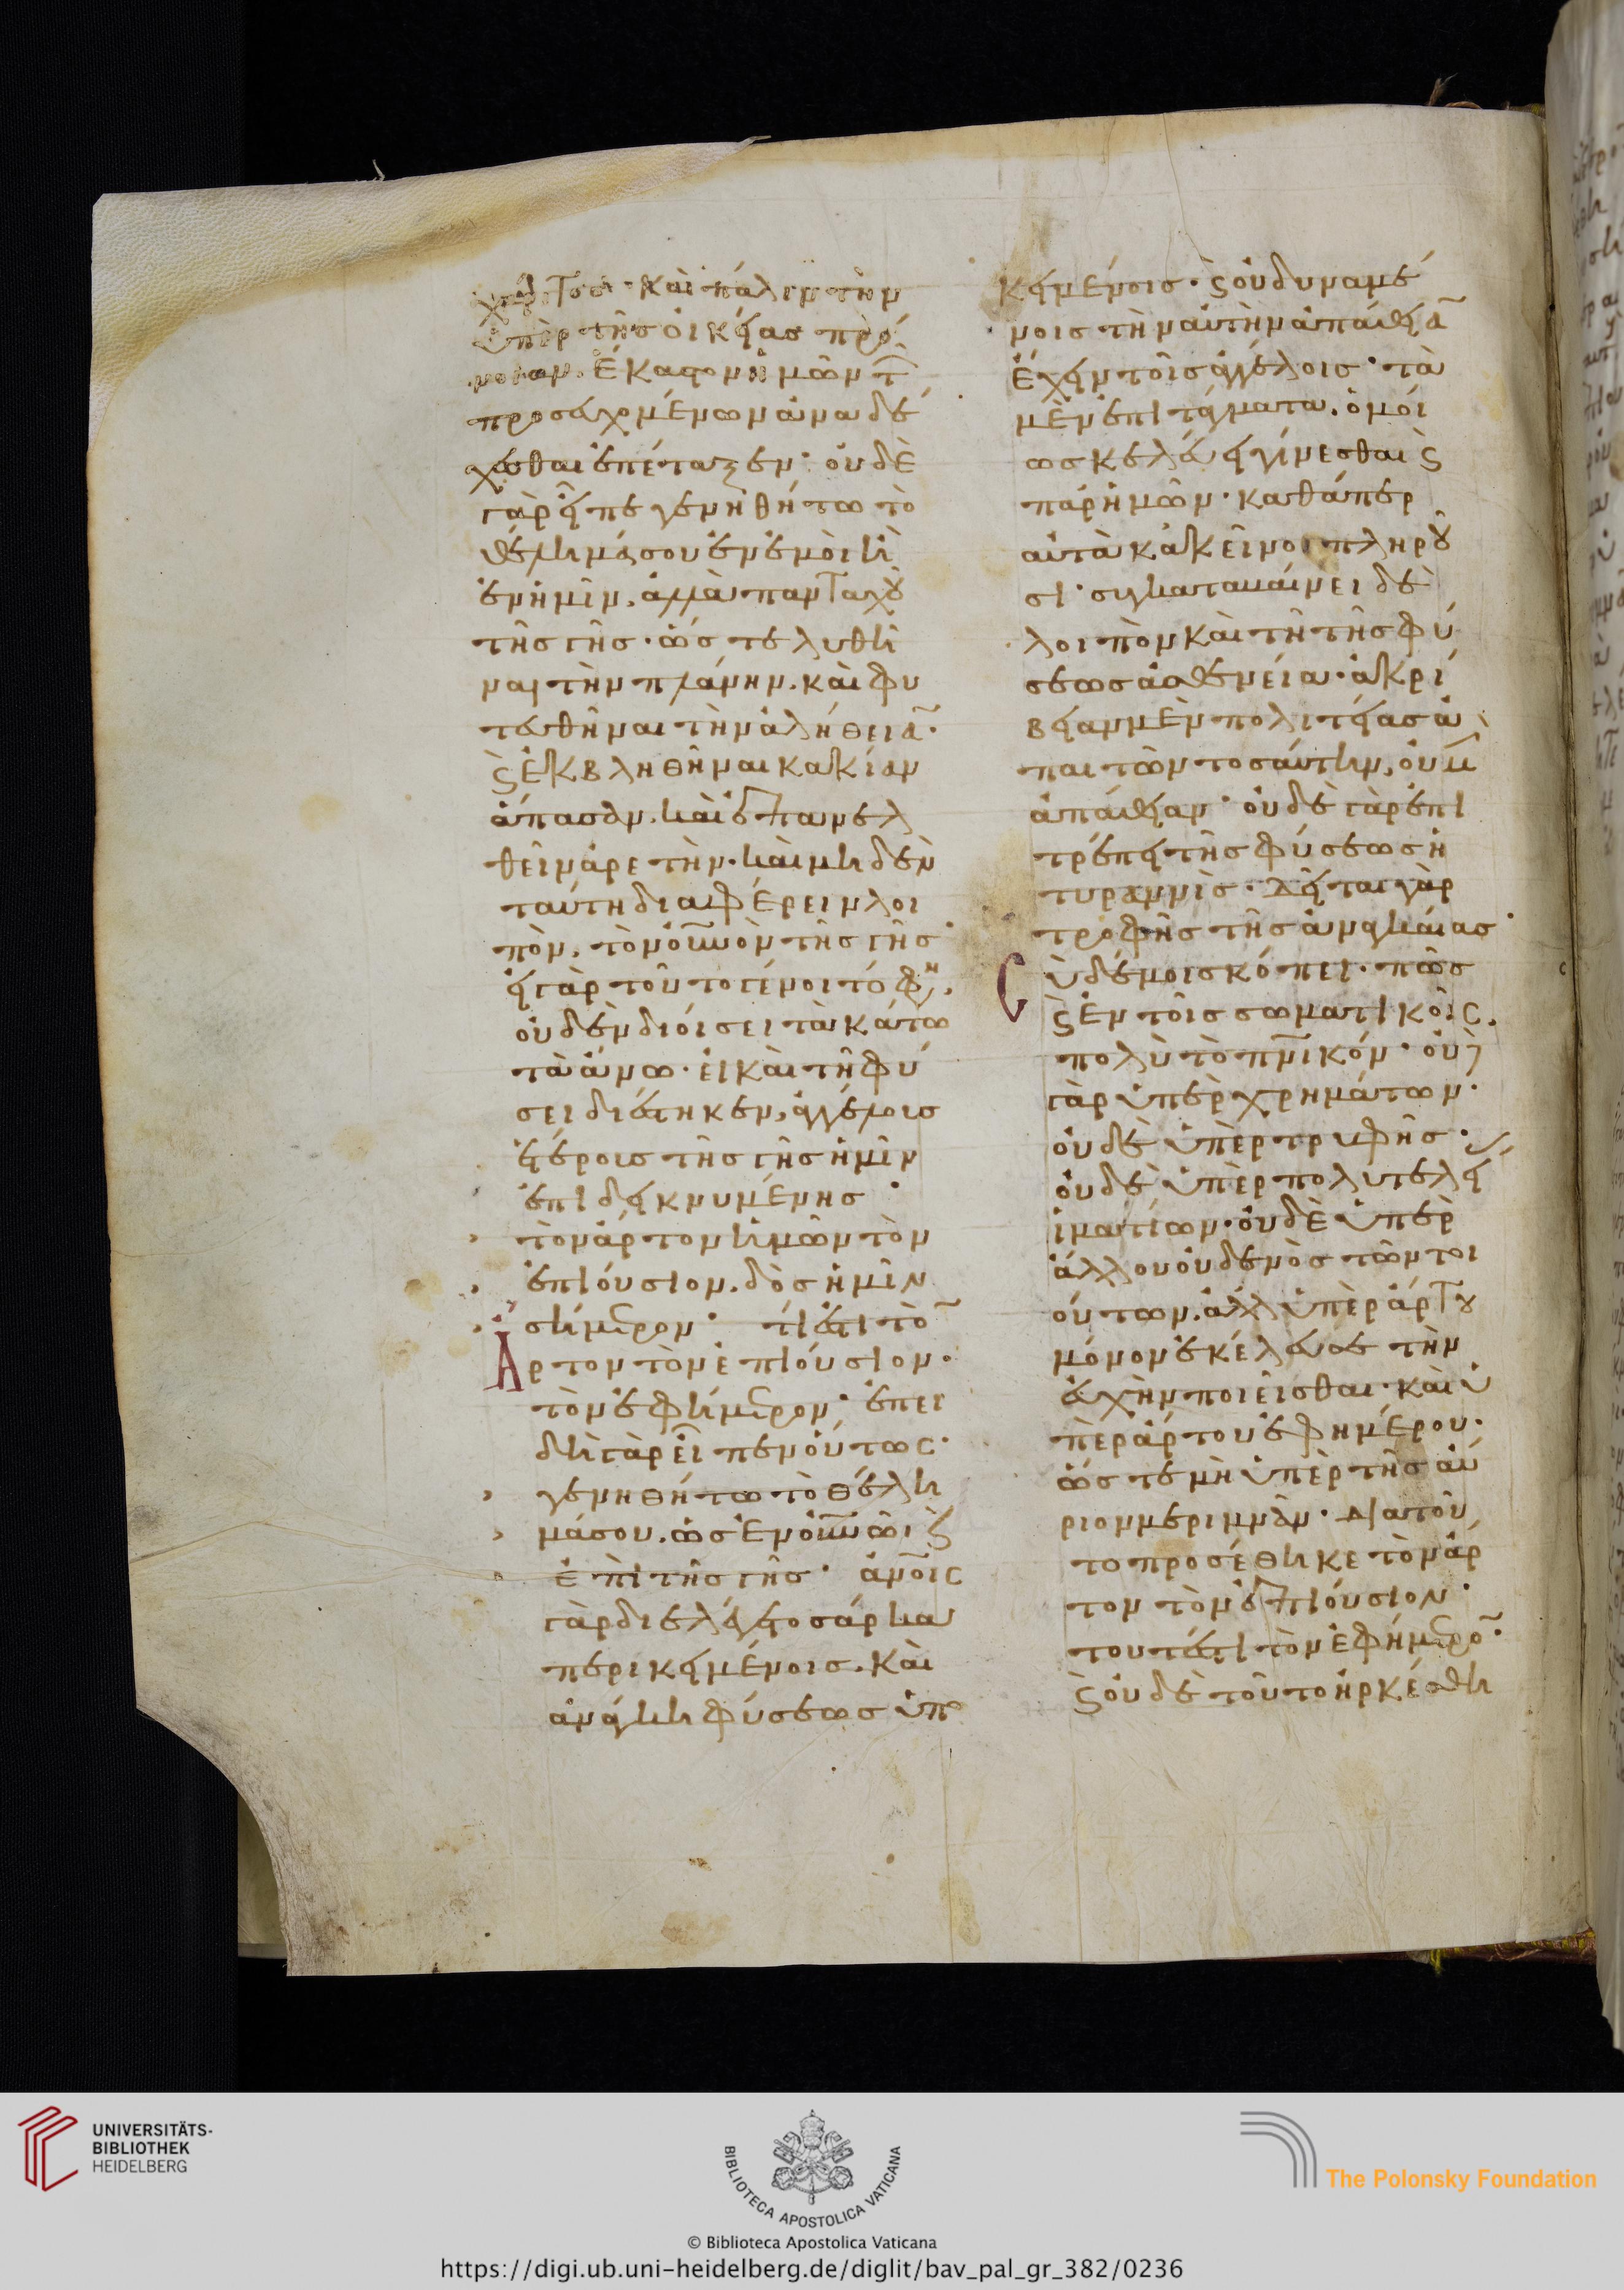 χάριτος· καὶ πάλιν τὴν
ὑπὲρ τῆς οἰκείας πρό
νοιαν. ἕκαστον ἡμῶν τ͂
προσευχομένων ἀναδέ
χεσθαι ἐπέταξεν· οὐδὲ
γὰρ εἶπε γενηθήτω τὸ
θέλημάσου ἐν ἐμοὶ ἢ
ἐν ἡμῖν, ἀλλὰ πανταχοῦ
τῆς γῆς· ὥστε λυθῆ
ναι τὴν πλάνην. καὶ φυ
τευθῆναι τὴν ἀλήθεια̅·
ϛ ἐκβληθῆναι κακίαν
ἅπασαν. καὶ ἐπανελ
θεῖν ἀρετήν· καὶ μηδὲν
ταύτη διαφέρειν λοι
πὸν, τὸν οὐ̅νὸν τῆς γῆς·
εἰ γὰρ τοῦτο γένοιτό φη,
οὐδὲν διοίσει τὰ κάτω
τὰ ἄνω· εἰ καὶ τῆ φύ
σει διέστηκεν, ἀγγέλοις
ἑτέροις τῆς γῆς ἡμῖν
ἐπιδεικνυμένης·
τὸν ἄρτον ἡμῶν τὸν
ἐπιούσιον. δὸς ἡμῖν
σήμερον· τί ἐστι τὸ̅
ἄρτον τὸν ἐπιούσιον·
τὸν ἐφήμερον· ἐπει
δὴ γὰρ εἶπεν οὕτως·
γενηθήτω τὸ θέλη
μάσου. ὡς ἐν οὐ̅νῶ ϛ
ἐπὶ τῆς γῆς· ἀν̅οις
γὰρ διελέγετο σάρκα
περικειμένοις. καὶ
ἀνάγκη φύσεως ὑπο
κειμένοις· ϛ οὐ δυναμέ
νοις τὴν αὐτὴν ἀπάθεια̅
ἔχειν τοῖς ἀγγέλοις· τὰ
μὲν ἐπιτάγματα. ὁμοί
ως κελεύει γίνεσθαι ϛ
παρ' ἡμῶν· καθάπερ
αὐτὰ κἀκεῖνοι πληροῦ
σι· συγκαταβαίνει δὲ
λοιπὸν καὶ τῆ τῆς φύ
σεως ἀσθενεία· ἀκρί
βειαν μὲν πολιτείας ἀ
παιτῶν τοσαύτην, οὐ μ
ἀπάθειαν· οὐδὲ γὰρ ἐπι
τρέπει τῆς φύσεως ἡ
τυραννὶς· δεῖται γὰρ
τροφῆς τῆς ἀναγκαίας·
Σὺ δέ μοι σκόπει· πῶς
ϛ ἐν τοῖς σωματικοῖς.
πολὺ τὸ πν̅ικόν· οὐ
γὰρ ὑπὲρ χρημάτων·
οὐδὲ ὑπὲρ τρυφῆς·
οὐδὲ ὑπὲρ πολυτελεί
ἱματίων· οὐδὲ ὑπὲρ
ἄλλου οὐδενὸς τῶν τοι
ούτων. ἀλλ' ὑπὲρ ἄρτου
μόνον ἐκέλευσε τὴν
εὐχὴν ποιεῖσθαι· καὶ ὑ
πὲρ ἄρτου ἐφημέρου·
ὥστε μὴ ὑπὲρ τῆς αὔ
ριον μεριμνᾶν· διατοῦ
το προσέθηκε τὸν ἄρ
τον τὸν ἐπιούσιον·
τουτέστι τὸν ἐφήμερο̅·
ϛ οὐδὲ τοῦτο ἠρκέσθη
UNIVERSITÄTS-
BIBLIOTHEK
HEIDELBERG
BIBLIOTECA APOSTOLICA VATICANA
© Biblioteca Apostolica Vaticana
The Polonsky Foundation
https://digi.ub.uni-heidelberg.de/diglit/bav_pal_gr_382/0236